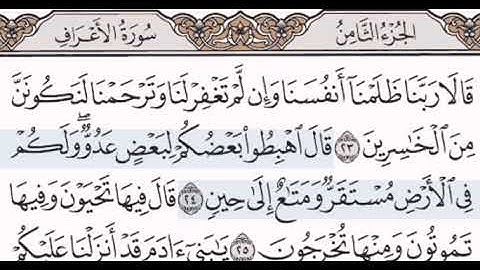 الجُزْءُ الثَّامِنُ
سُورَةُ الأَعْرَافِ
قَالَا رَبَّنَا ظَلَمْنَآ أَنفُسَنَا وَإِن لَّمْ تَغْفِرْ لَنَا وَتَرْحَمْنَا لَنَكُونَنَّ
مِنَ ٱلْخَٰسِرِينَ ٢٣ قَالَ ٱهْبِطُوا۟ بَعْضُكُمْ لِبَعْضٍ عَدُوٌّ ۖ وَلَكُمْ
فِى ٱلْأَرْضِ مُسْتَقَرٌّ وَمَتَٰعٌ إِلَىٰ حِينٍ ٢٤ قَالَ فِيهَا تَحْيَوْنَ وَفِيهَا
تَمُوتُونَ وَمِنْهَا تُخْرَجُونَ ٢٥ يَٰبَنِىٓ ءَادَمَ قَدْ أَنزَلْنَا عَلَيْكُمْ